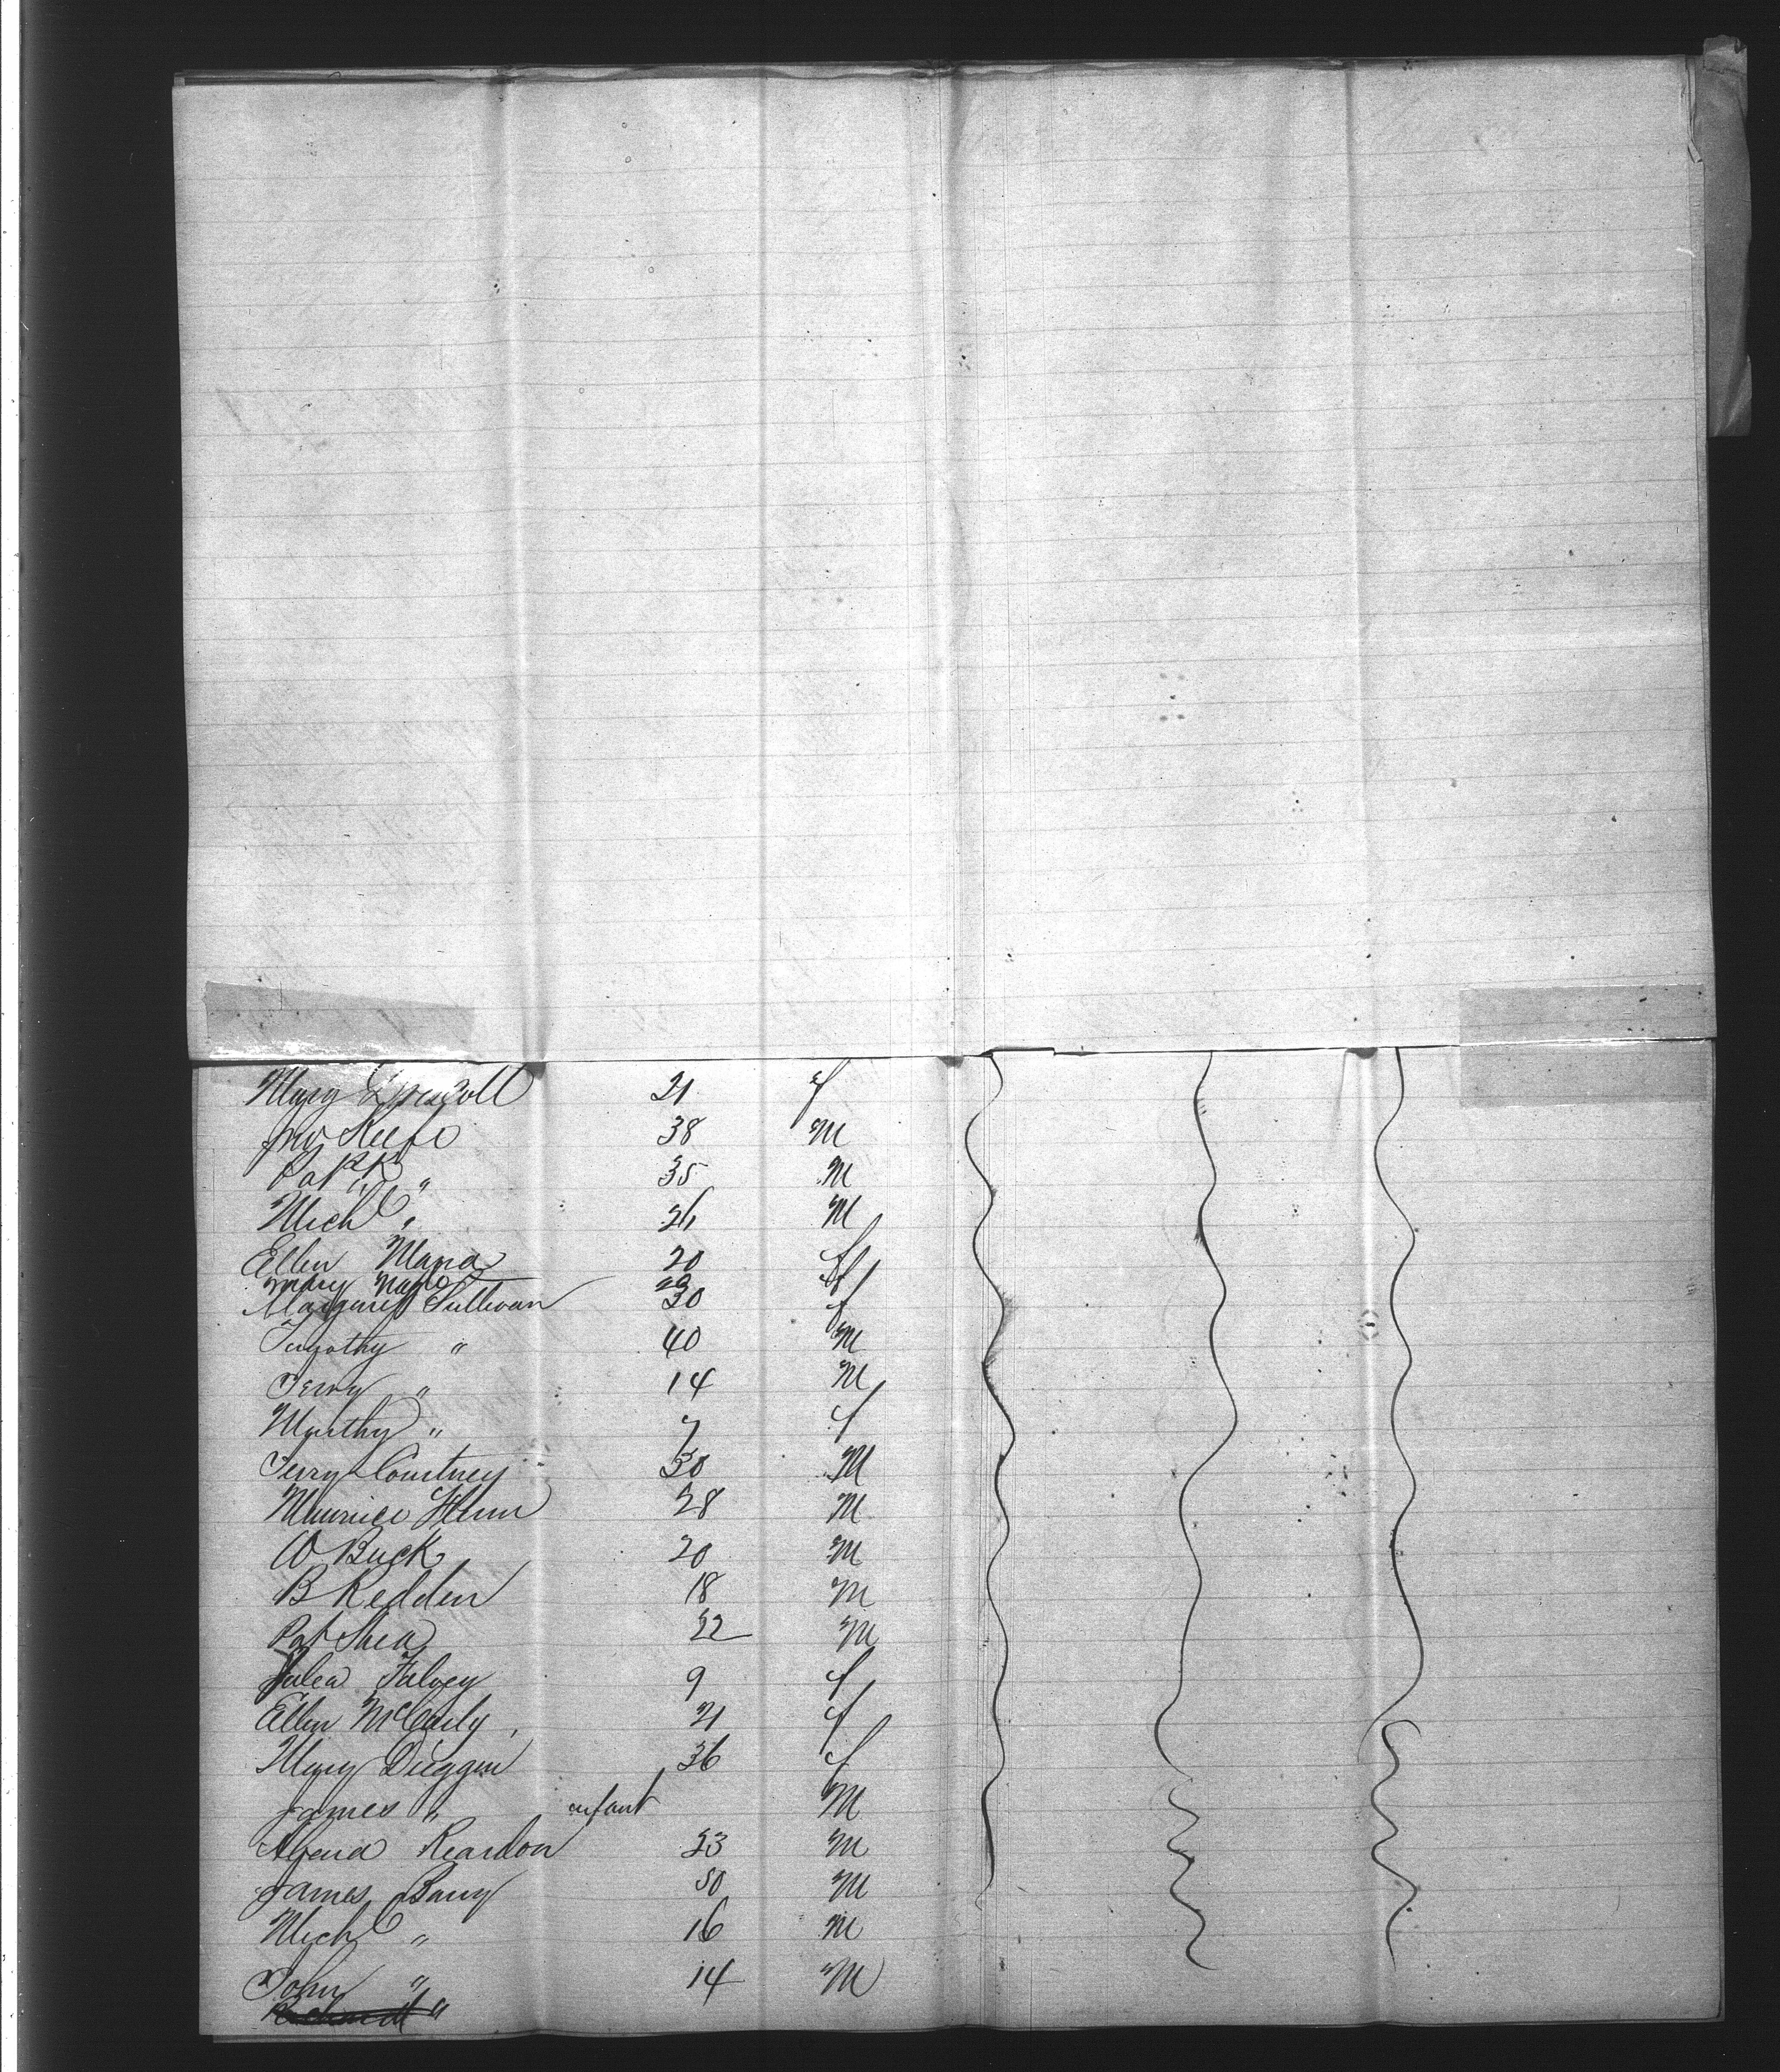 Mary Driscoll 21 f
Jno Keefe 38 M
Pat " 35 M
Mich " 26 M
Ellen Mara 20 f
Mary Mara 22 f
Margaret Sullivan 30 f
Timothy " 40 M
Jerry " 14 M
Marthy " 7 f
Jerry Courtney 30 M
Maurice Flinn 28 M
W Buck 20 M
B Redden 18 M
Pat Shea 22 M
Julea Falvey 9 f
Ellen McCarly 21 f
Mary Duggan 36 f
James " infant M
Reardon 23 M
James Barry 50 M
Mich " 16 M
John " 14 M
Richard "